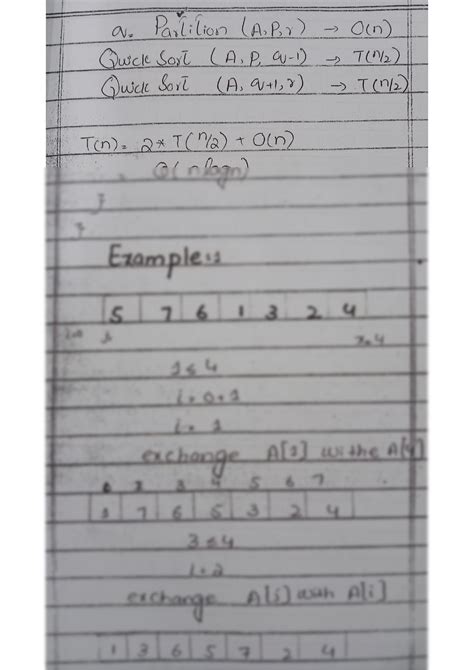 q = Partition (A, P, r) → O(n)
Quick Sort (A, P, q-1) → T(n/2)
Quick Sort (A, q+1, r) → T(n/2)
T(n) = 2 * T(n/2) + O(n)
O(n logn)
}
}
Example:1
5 7 6 1 3 2 4
i=0 x=4
1 ≤ 4
i = 0+1
i = 1
exchange A[1] withe A[4]
2 3 4 5 6 7
1 7 6 5 3 2 4
3 ≤ 4
i = 2
exchange A[j] with A[i]
1 3 6 5 7 2 4